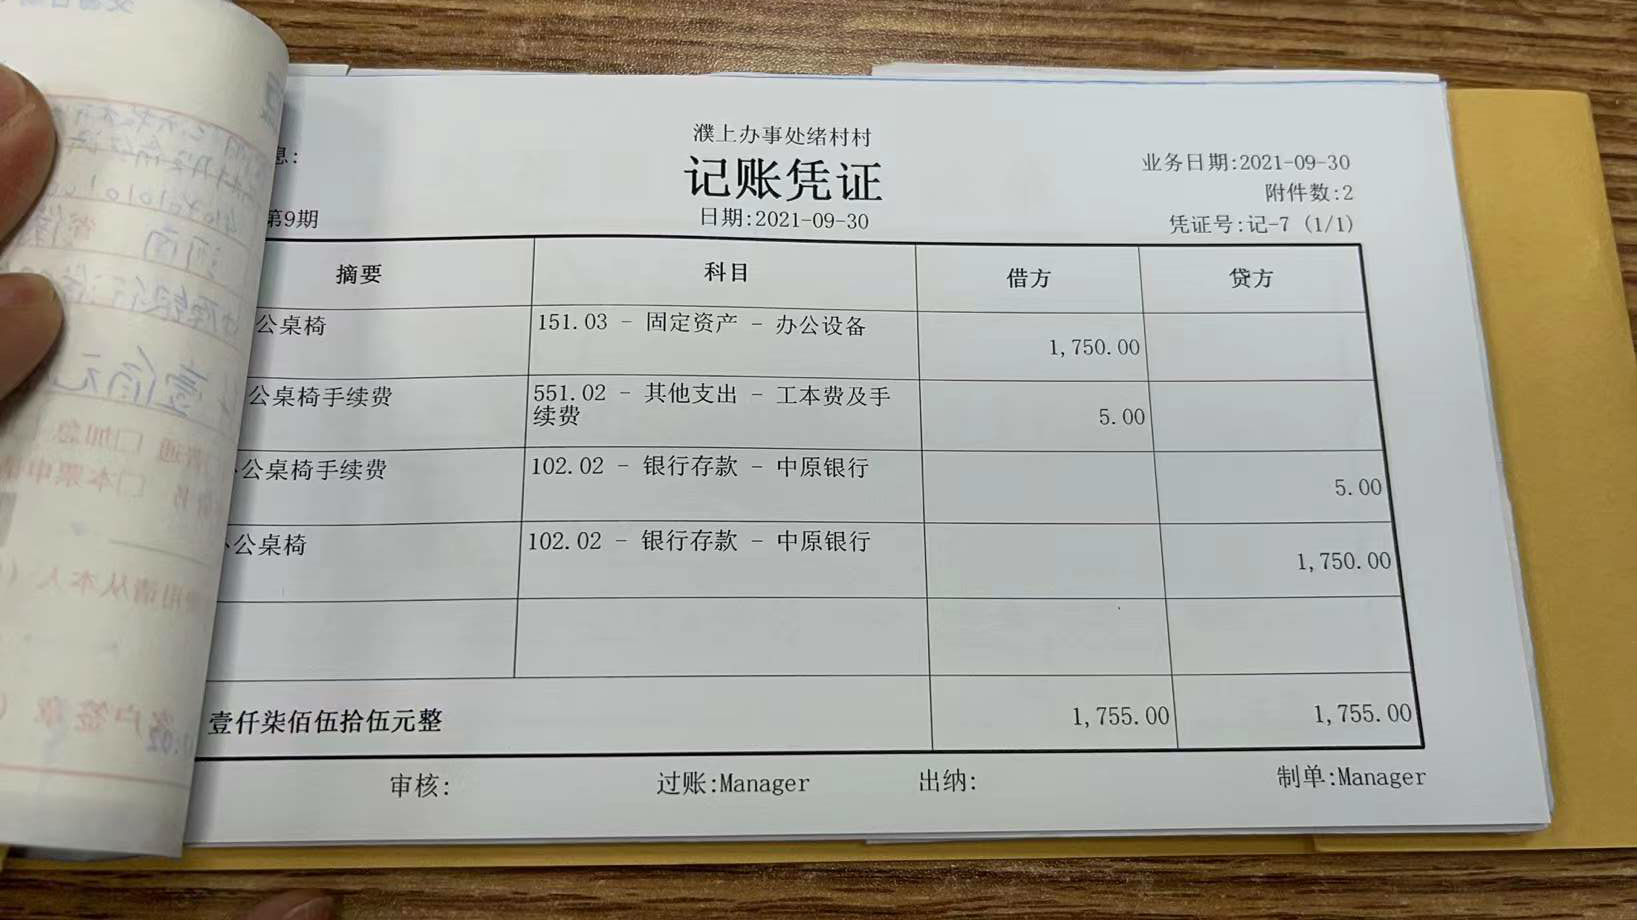 濮上办事处绪村村
记账凭证
日期:2021-09-30
业务日期:2021-09-30
附件数:2
凭证号:记-7 (1/1)
息:
第9期
摘要 科目 借方 贷方
公桌椅 151.03 - 固定资产 - 办公设备 1,750.00
公桌椅手续费 551.02 - 其他支出 - 工本费及手
续费 5.00
公桌椅手续费 102.02 - 银行存款 - 中原银行 5.00
公桌椅 102.02 - 银行存款 - 中原银行 1,750.00
壹仟柒佰伍拾伍元整 1,755.00 1,755.00
审核: 过账:Manager 出纳: 制单:Manager